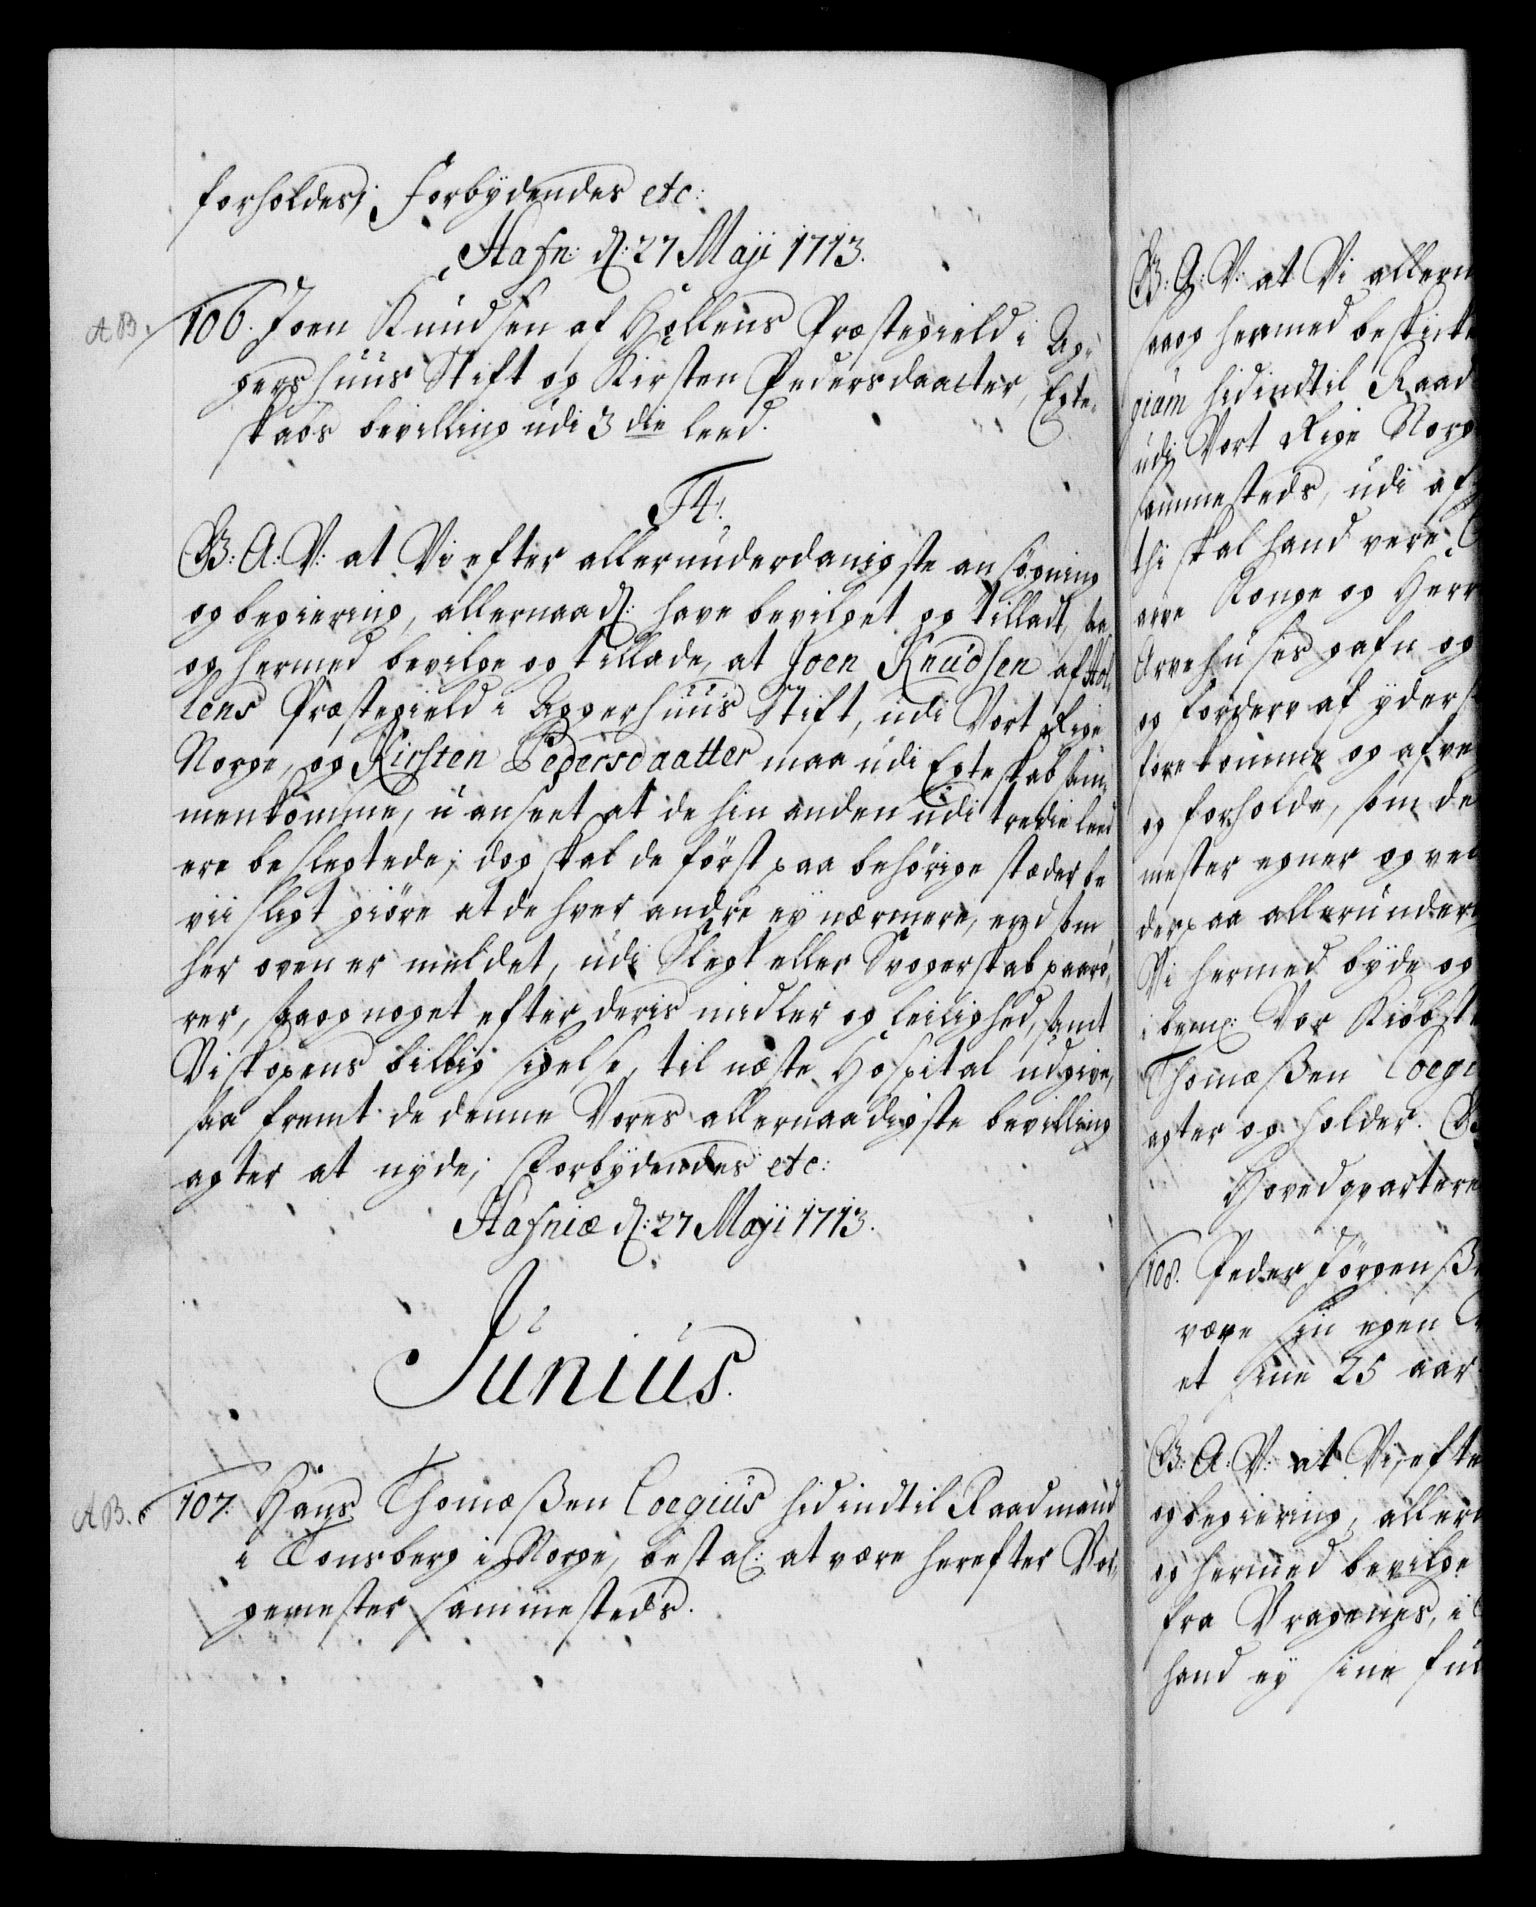 forholdes; Forbydendes etc:
Hafn: d: 27 Maji 1713.
A.B.
106. Joen Knudsen af Hollens Præstegield i Ag-
gershuus Stift og Kirsten Pedersdaatter, Egte-
skabs bevilling udi 3 die leed.
F4.
G: A: V: at Vi efter allerunderdanigste ansøgning
og begiering, allernaad: have bevilget og tilladt, saa
og hermed bevilge og tillade, at Joen Knudsen af Hol-
lens Præstegield i Aggershuus Stift, udi Vort Rige
Norge, og Kirsten Pedersdaatter maa udi Egteskab sam-
menkomme, uanseet at de hin anden udi tredie leed
ere beslegtede; dog skal de först paa behörige stæder be
viisligt giöre at de hver andre ey nærmere, end som
her oven er meldet, udi Slegt eller Svogerskab paarö-
rer, saa og noget efter deris midler og leilighed, samt
Biskopens billig sigelse, til næste Hospital udgive,
saa fremt de denne Vores allernaadigste bevilling
agter at nyde; Forbydendes etc:
Hafniæ d: 27 Maji 1713.
Junius.
A.B.
107. Hans Thomæßen Coegius hidindtil Raadmand
i Tonsberg i Norge, bestal: at være herefter Bor-
gemester sammesteds.
G: A: V: at Vi allern
saa og hermed beskikke
gium hidindtil Raad
udi Vort Rige Norg
sammesteds, udi af
thi skal hand vere
arve Konge og Herr
Arvehuses gafn og
og fordere af yders
forekomme og afve
og forholde, som de
mester egner og vel
derpaa allerunder
Vi hermed byde og
i bem: Vor Kiöbste
Thomæßen Coegi
agter og holder.
Hovedqvartere
108. Peder Jörgenß
være sin egen
et sine 25 aar
G: A: V: at Vi, efte
og begiering, allern
og hermed bevilge
fra Bragenes, i
hand ey sine ful